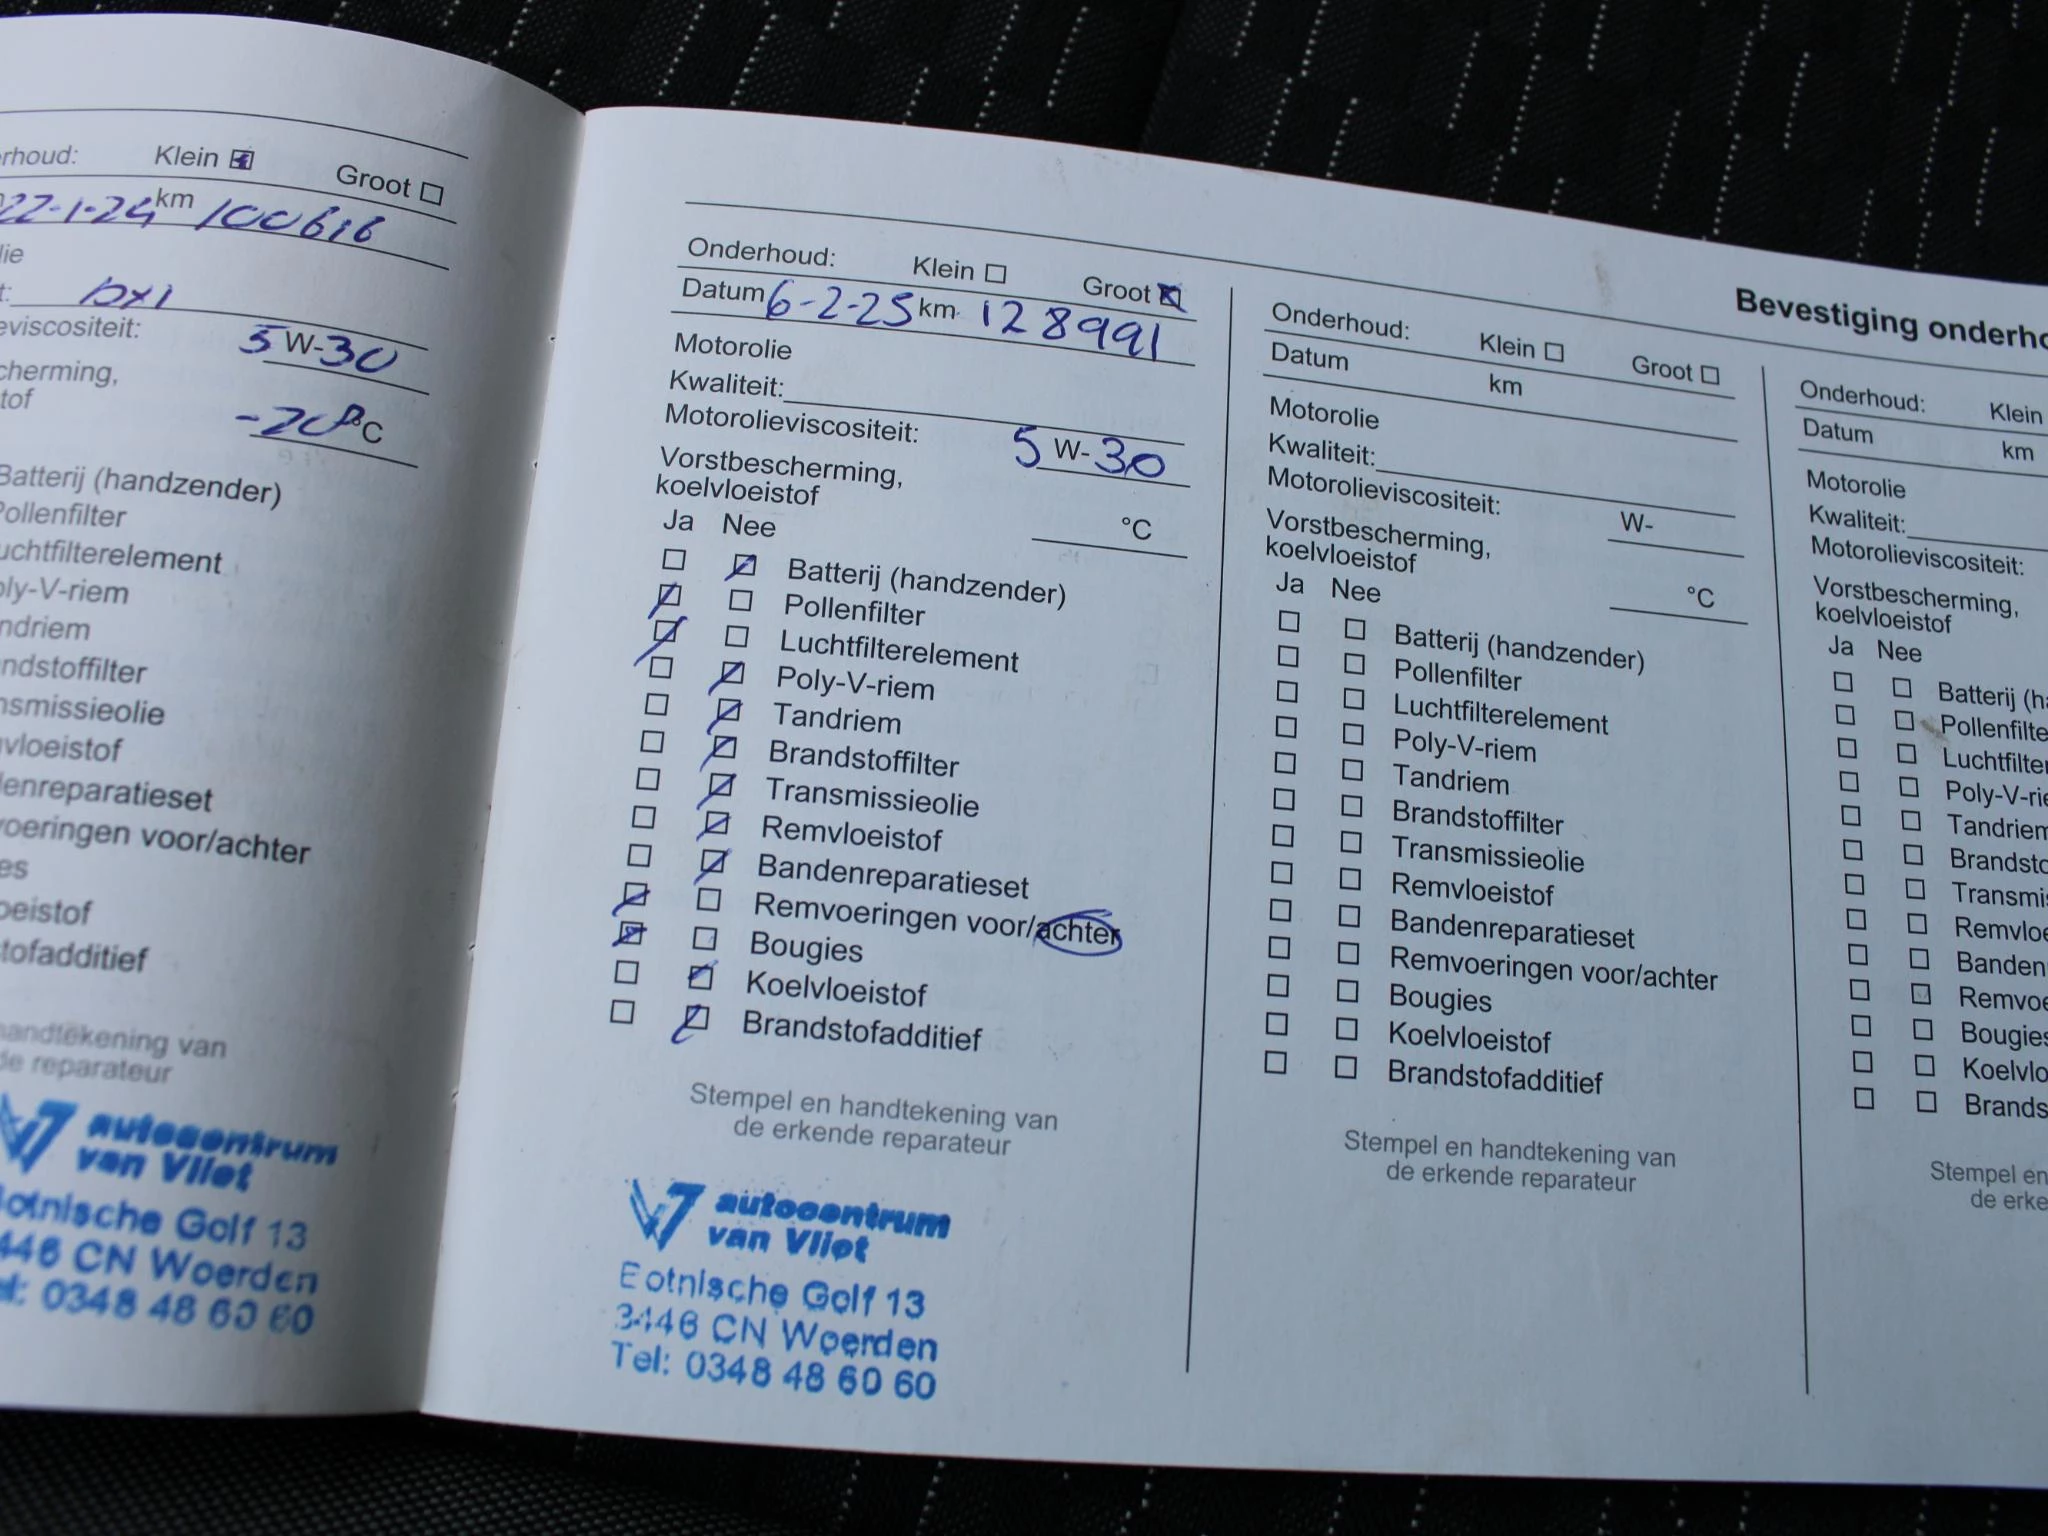 Klein Groot
22-1-24 km 100616
5 W-30
-20 °C
Batterij (handzender)
Pollenfilter
Luchtfilterelement
Poly-V-riem
Tandriem
Brandstoffilter
Transmissieolie
Remvloeistof
Bandenreparatieset
Remvoeringen voor/achter
handtekening van
de reparateur
autocentrum
van Vliet
Botnische Golf 13
3446 CN Woerden
Tel: 0348 48 60 60
Onderhoud: Klein Groot
Datum 6-2-25 km 128991
Motorolie
Kwaliteit:
Motorolieviscositeit:
5 W-30
Vorstbescherming,
koelvloeistof
°C
Ja Nee
Batterij (handzender)
Pollenfilter
Luchtfilterelement
Poly-V-riem
Tandriem
Brandstoffilter
Transmissieolie
Remvloeistof
Bandenreparatieset
Remvoeringen voor/achter
Bougies
Koelvloeistof
Brandstofadditief
Stempel en handtekening van
de erkende reparateur
autocentrum
van Vliet
Botnische Golf 13
3446 CN Woerden
Tel: 0348 48 60 60
Bevestiging onderho
Onderhoud: Klein Groot
Datum km
Motorolie
Kwaliteit:
Motorolieviscositeit:
W-
Vorstbescherming,
koelvloeistof
°C
Ja Nee
Batterij (handzender)
Pollenfilter
Luchtfilterelement
Poly-V-riem
Tandriem
Brandstoffilter
Transmissieolie
Remvloeistof
Bandenreparatieset
Remvoeringen voor/achter
Bougies
Koelvloeistof
Brandstofadditief
Stempel en handtekening van
de erkende reparateur
Onderhoud: Klein
Datum km
Motorolie
Kwaliteit:
Motorolieviscositeit:
Vorstbescherming,
koelvloeistof
Ja Nee
Batterij (ha
Pollenfilte
Luchtfilter
Poly-V-rie
Tandriem
Brandsto
Transmis
Remvloe
Banden
Remvoe
Bougies
Koelvlo
Brands
Stempel en
de erke